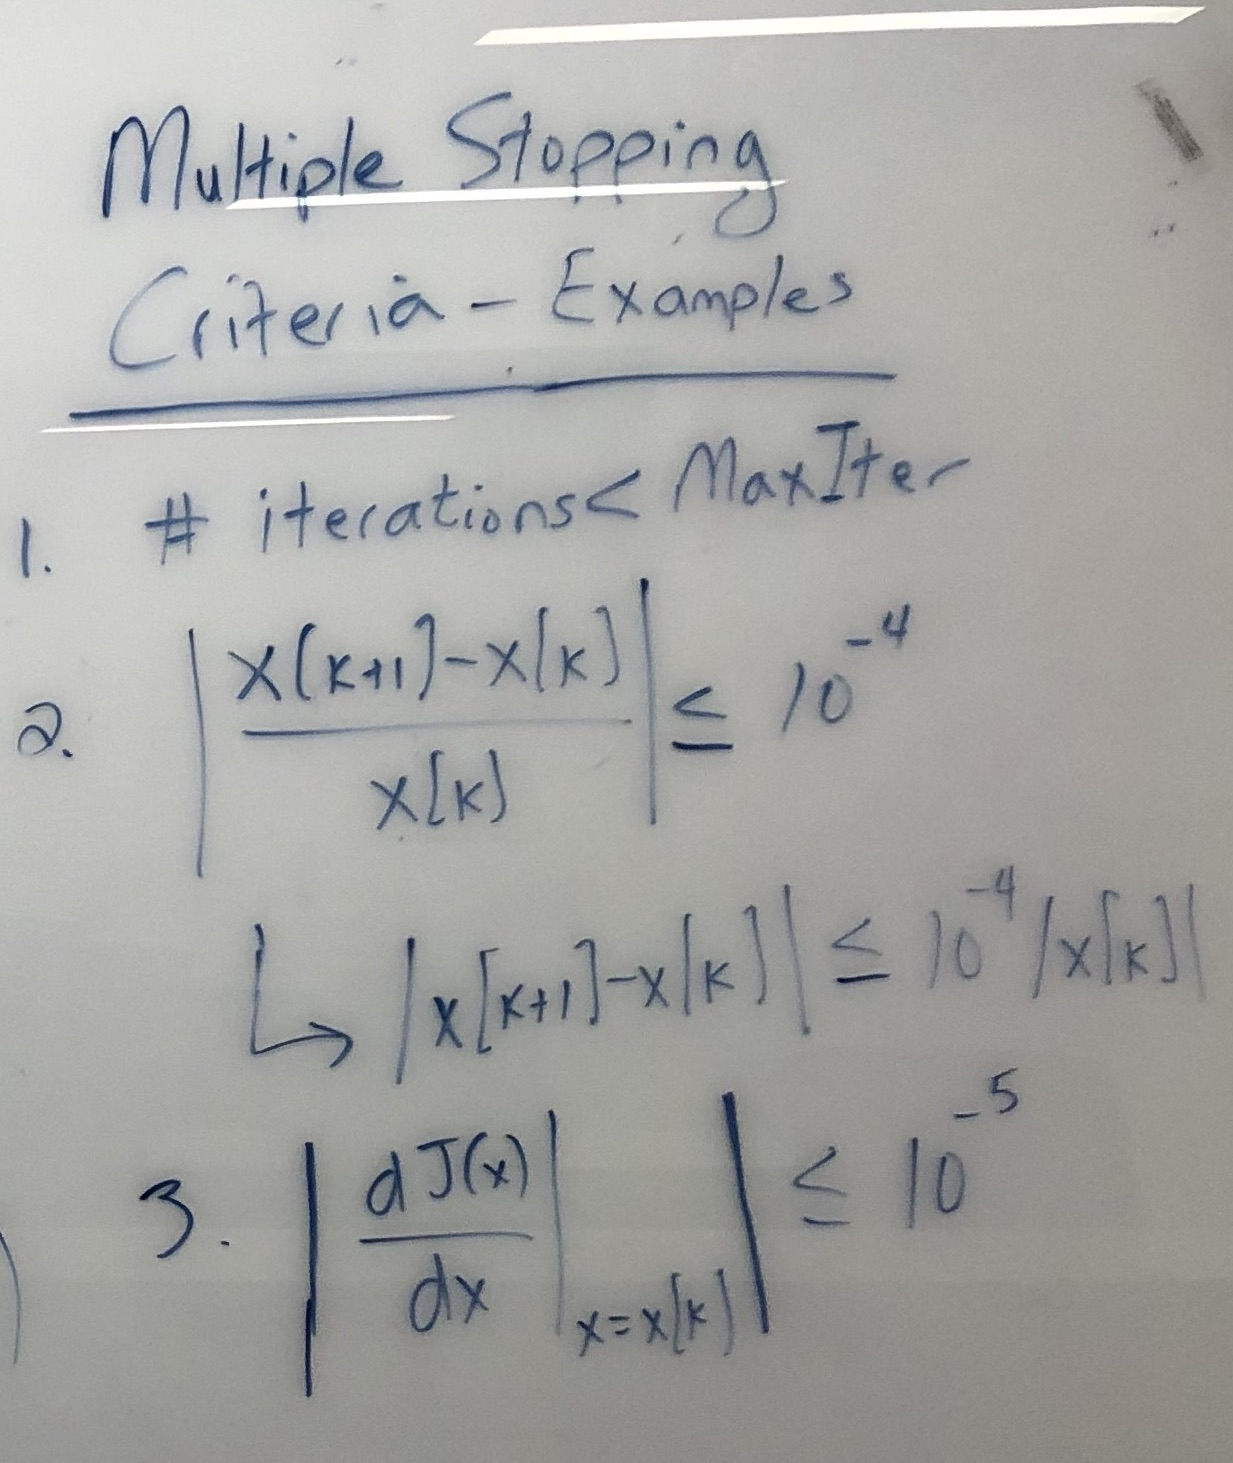 Multiple Stopping
Criteria - Examples
1. # iterations < MaxIter
2. |(x[k+1]-x[k])/x[k]| ≤ 10^-4
↳ |x[k+1]-x[k]| ≤ 10^-4 |x[k]|
3. |dJ(x)/dx|_{x=x[k]}| ≤ 10^-5